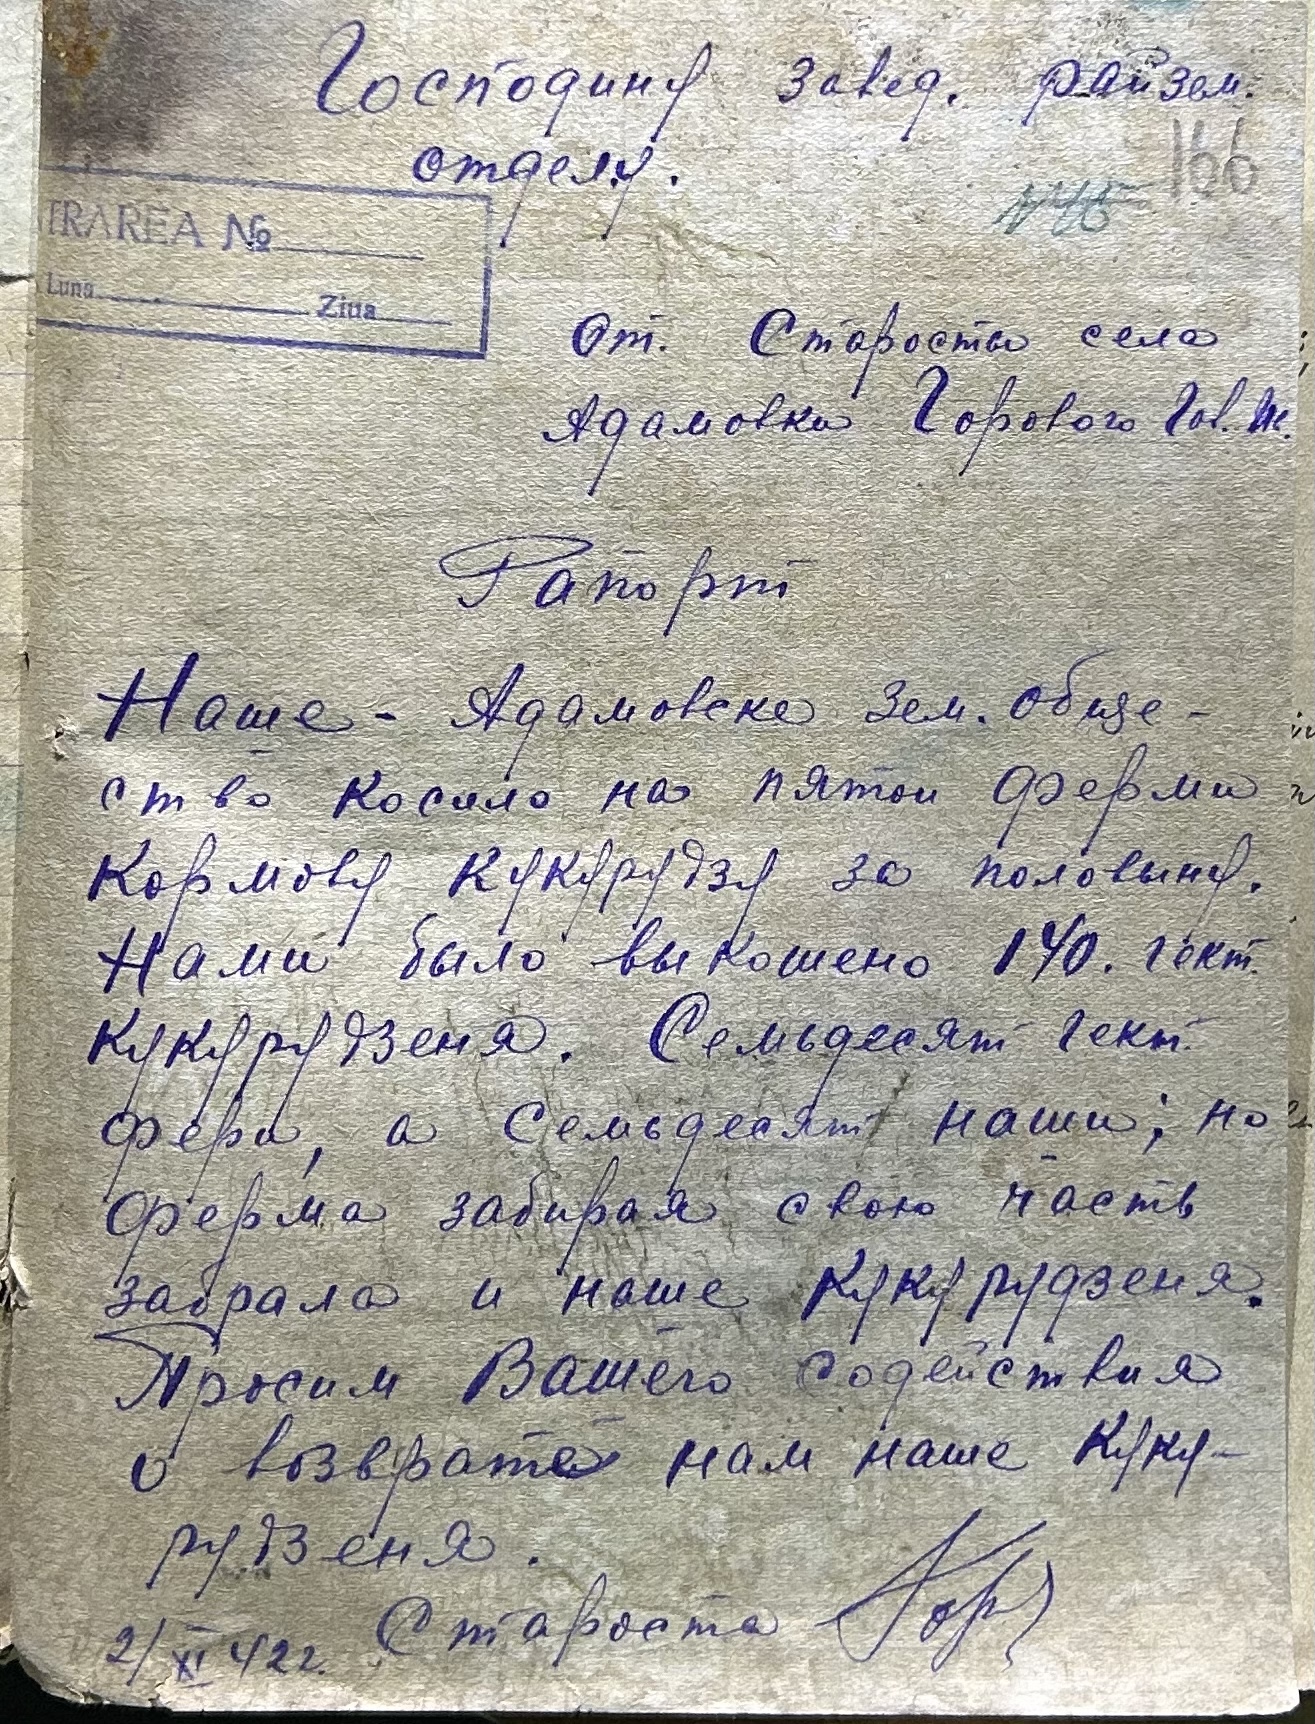 Господину завед. райзем.
отделу.
166
N 45
TRAREA №
Luna Ziua
От. Старосты села
Адамовки Горового Гов. Ж.
Рапорт
Наше - Адамовске зем. обще-
ство косило на пятои ферми
кормову кукурудзу за половыну.
Нами было выкошено 140. гект.
кукурудзеня. Семьдесят гект.
ферм, а семьдесят наши; но
ферма забирая свою часть
забрала и наше кукурудзеня.
Просим Вашего содействия
о возврате нам наше куку-
рудзеня.
2/XI 42 г. Староста Гор